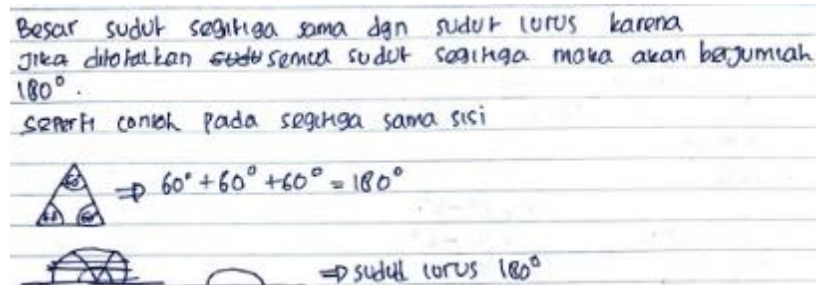 Besar sudut segitiga sama dgn sudut lurus karena
Jika ditotalkan semua sudut segitiga maka akan berjumlah
180°.
Seperti contoh pada segitiga sama sisi
60 60 60 ⇒ 60° + 60° + 60° = 180°
⇒ sudut lurus 180°